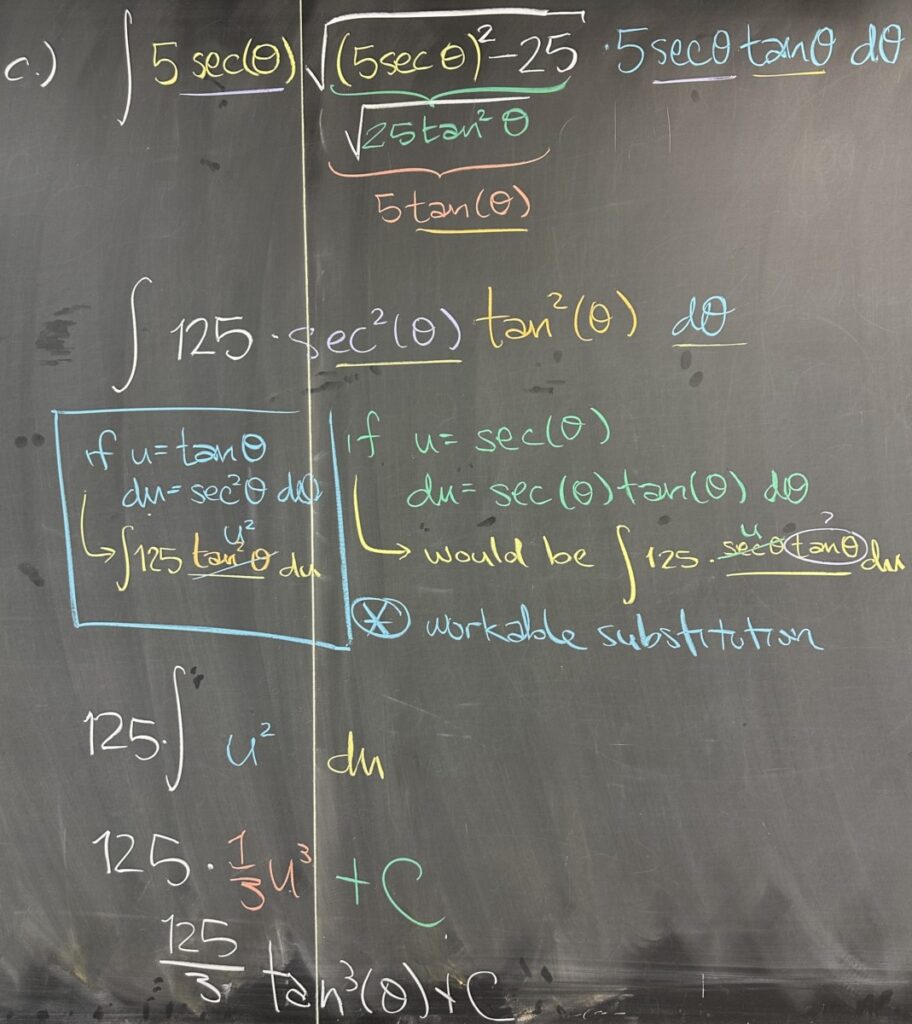 c.) ∫ 5 sec(θ) √((5 sec θ)² − 25) · 5 sec θ tan θ dθ
√(25 tan² θ)
5 tan(θ)
∫ 125 · sec²(θ) tan²(θ) dθ
if u = tan θ
du = sec² θ dθ
u²
↳ ∫ 125 tan² θ du
if u = sec(θ)
du = sec(θ) tan(θ) dθ
u ?
↳ would be ∫ 125 · sec θ tan θ du
* workable substitution
125 · ∫ u² du
125 · 1/3 u³ + C
125/3 tan³(θ) + C